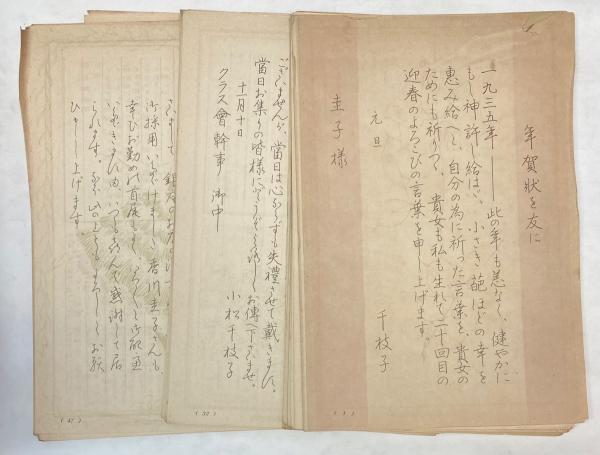 年賀狀を友に
一九三五年―― 此の年も恙なく、健やかに
もし神許し給はゞ、小さき葩ほどの幸を
惠み給へと、自分の為に祈った言葉を、貴女の
ためにも祈りつゝ、貴女も私も生れて二十回目の
迎春のよろこびの言葉を申し上げます。
元旦
千枝子
圭子様
( 3 )
ございませんが、當日は心ならずも失禮させて戴きました。
當日お集りの皆様にどうぞよろしくお傳へ下さいませ。
十一月十日
小松千枝子
クラス會幹事 御中
( 32 )
御採用いたゞけまし 香川圭子さんも
幸ひお勤めの
いつも 感謝して居
られます。
上げます。
( 47 )